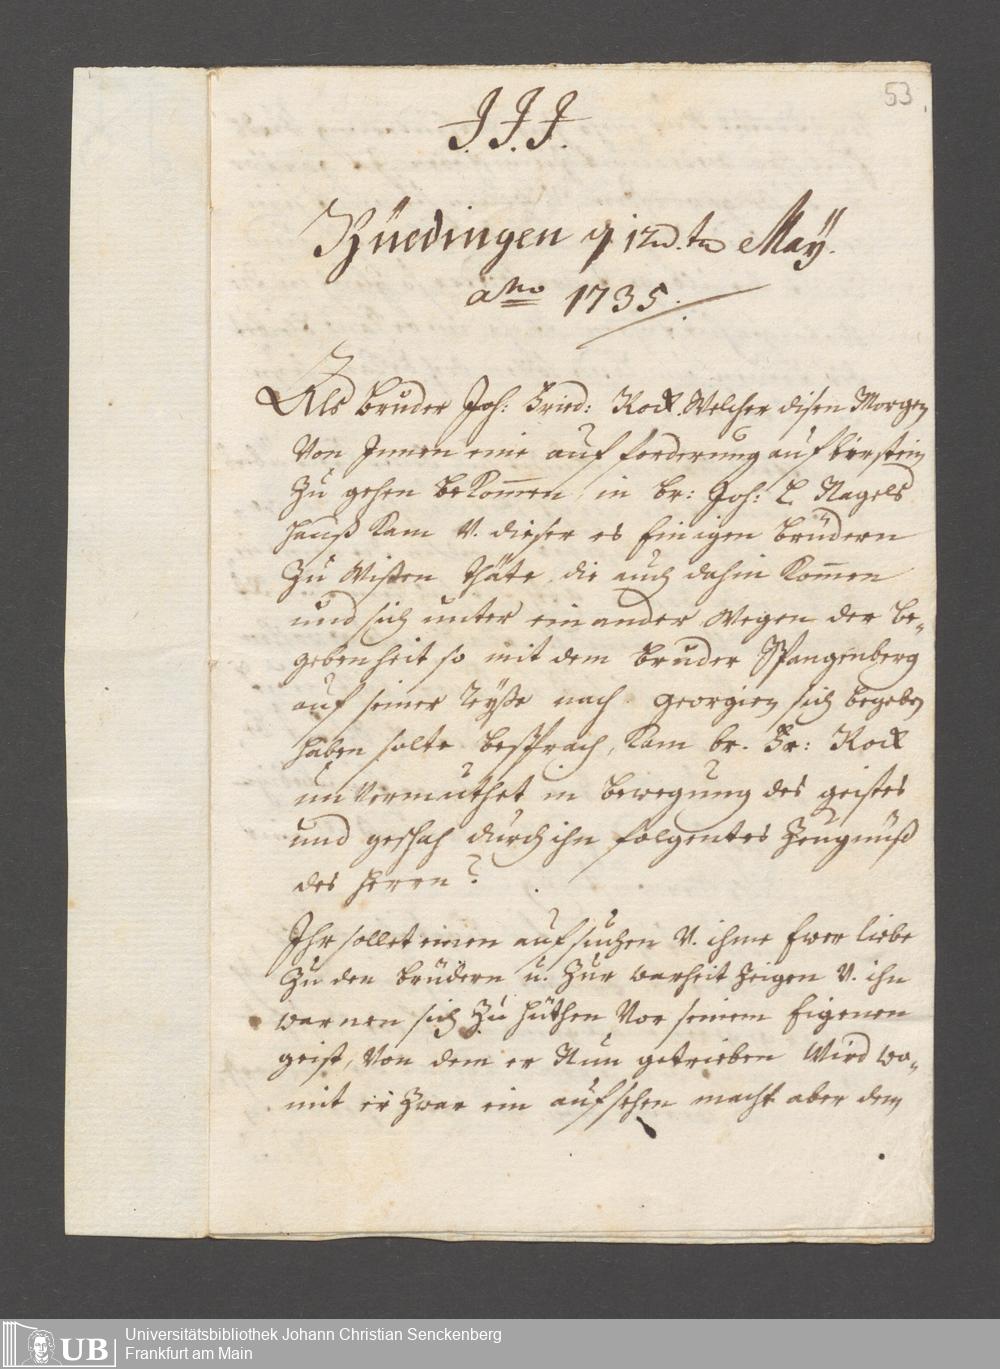 53
J. J. J.
Büedingen d 12d. tn Maÿ.
ano 1735.
Als bruder Joh: Fried: Rock. Welcher disen Morgen
Von Innen eine aufforderung auf birstein
Zu gehen bekomen, in br: Joh: L. Nagels
hauß kam V. dieser es Einigen brüdern
Zu wißen thäte, die auch dahin komen
und sich unter einander wegen der be-
gebenheit so mit dem bruder Spangenberg
auf seiner Reyße nach georgien sich begeben
haben solte besprach, kam br. Fr: Rock
unvermuthet in bewegung des geistes
und geschah durch ihn folgentes Zeugnüß
des Herrn?
Ihr sollet einen aufsuchen V. ihme Ewer liebe
Zu den brüdern u. Zur warheit zeigen V. ihn
warnen sich Zu hüthen Vor seinem Eigenen
geist, Von dem er Nun getrieben Wird wo-
mit er zwar ein aufsehen macht aber dem
UB
Universitätsbibliothek Johann Christian Senckenberg
Frankfurt am Main